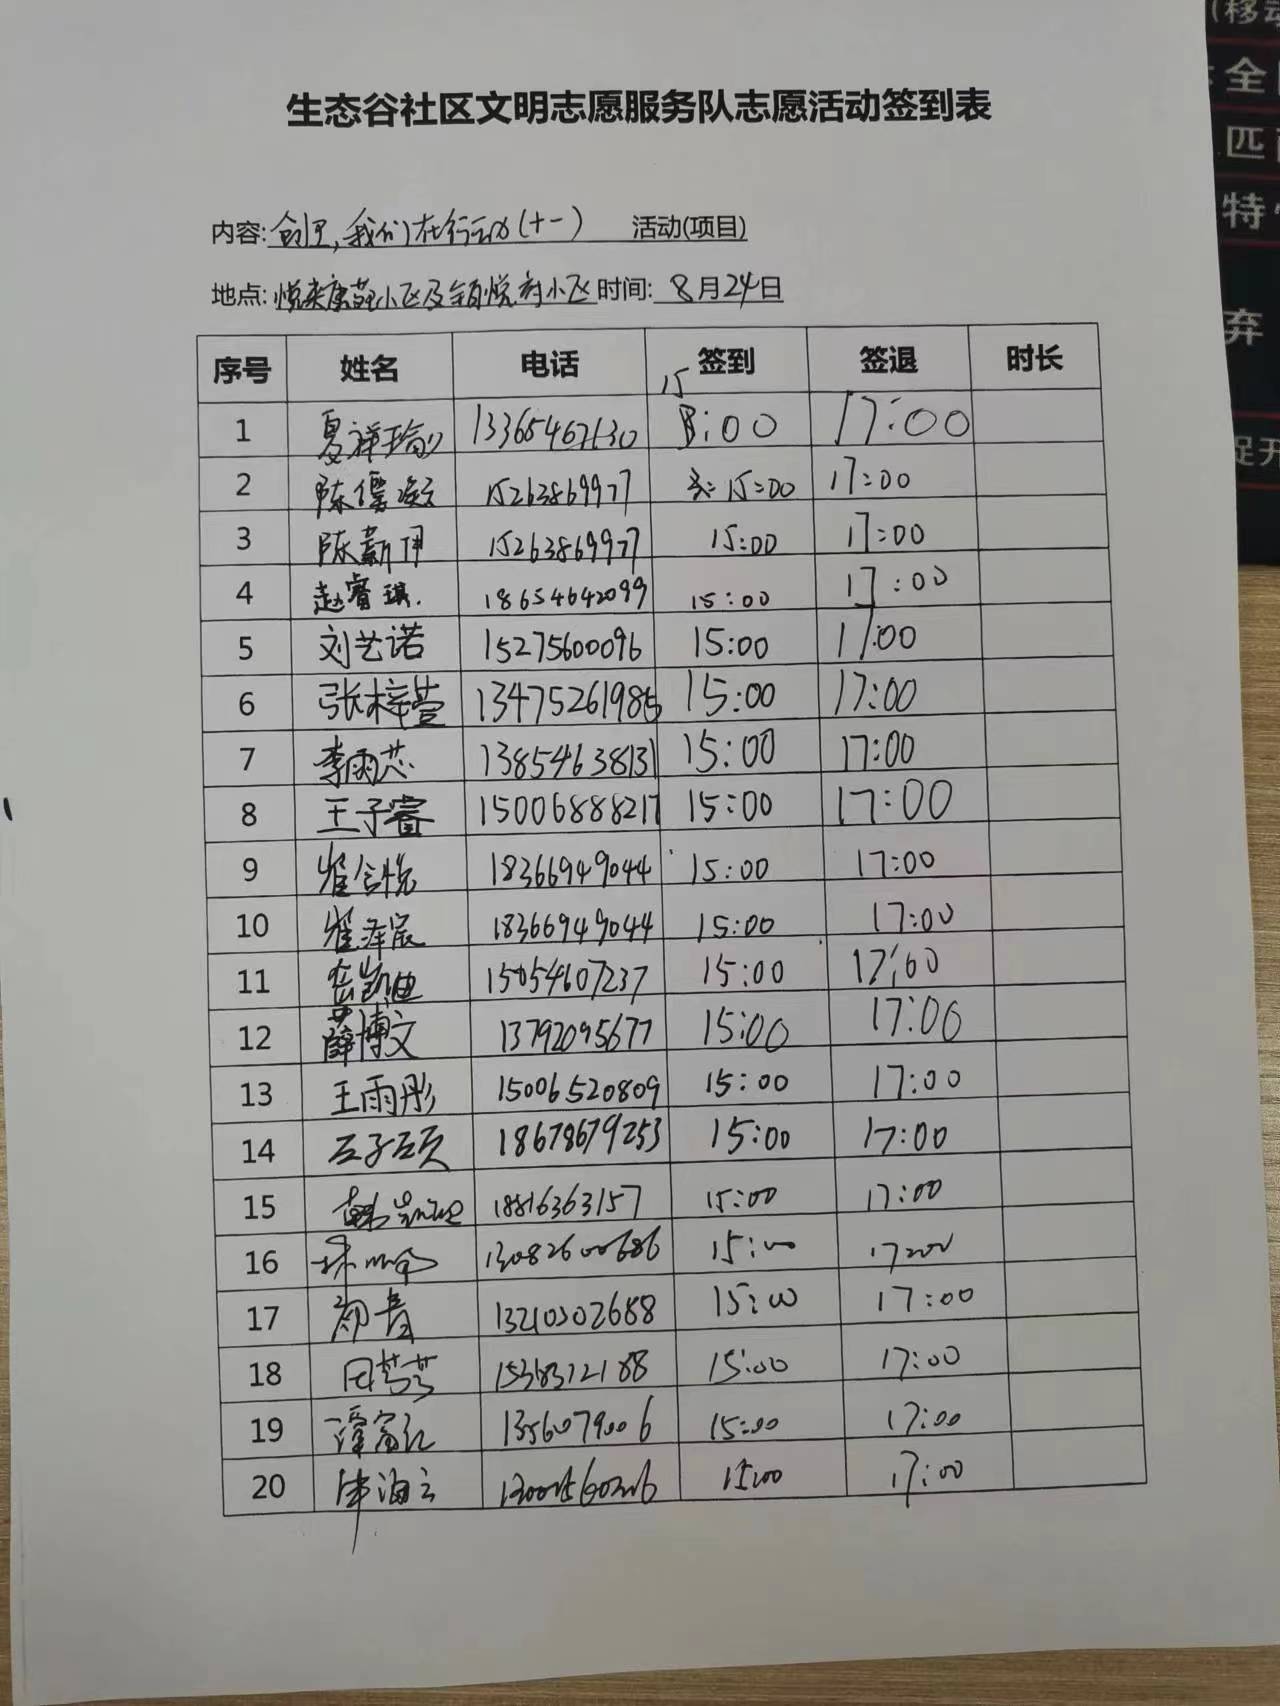 生态谷社区文明志愿服务队志愿活动签到表
内容: 创卫,我们在行动(十一) 活动(项目)
地点: 悦来康苑小区及领悦府小区 时间: 8月24日
序号 姓名 电话 签到 签退 时长
1 夏祥瑜 13365467130 15:00 17:00
2 陈儒 15263869977 15:00 17:00
3 陈薪伊 15263869977 15:00 17:00
4 赵睿琪. 18654642099 15:00 17:00
5 刘艺诺 15275600096 15:00 17:00
6 张梓萱 13475261985 15:00 17:00
7 李雨芯 13854638131 15:00 17:00
8 王子睿 15006888217 15:00 17:00
9 崔 悦 18366949044 15:00 17:00
10 崔泽宸 18366949044 15:00 17:00
11 凯迪 15054607237 15:00 17:00
12 薛博文 13792095677 15:00 17:00
13 王雨彤 15006520809 15:00 17:00
14 王子硕 18678679253 15:00 17:00
15 韩 18816363157 15:00 17:00
16 13082600686 15:00 17:00
17 青 13210302688 15:00 17:00
18 田芳芳 1538312188 15:00 17:00
19 谭富江 1356079006 15:00 17:00
20 海云 15:00 17:00
(移动
全
匹
特
弃